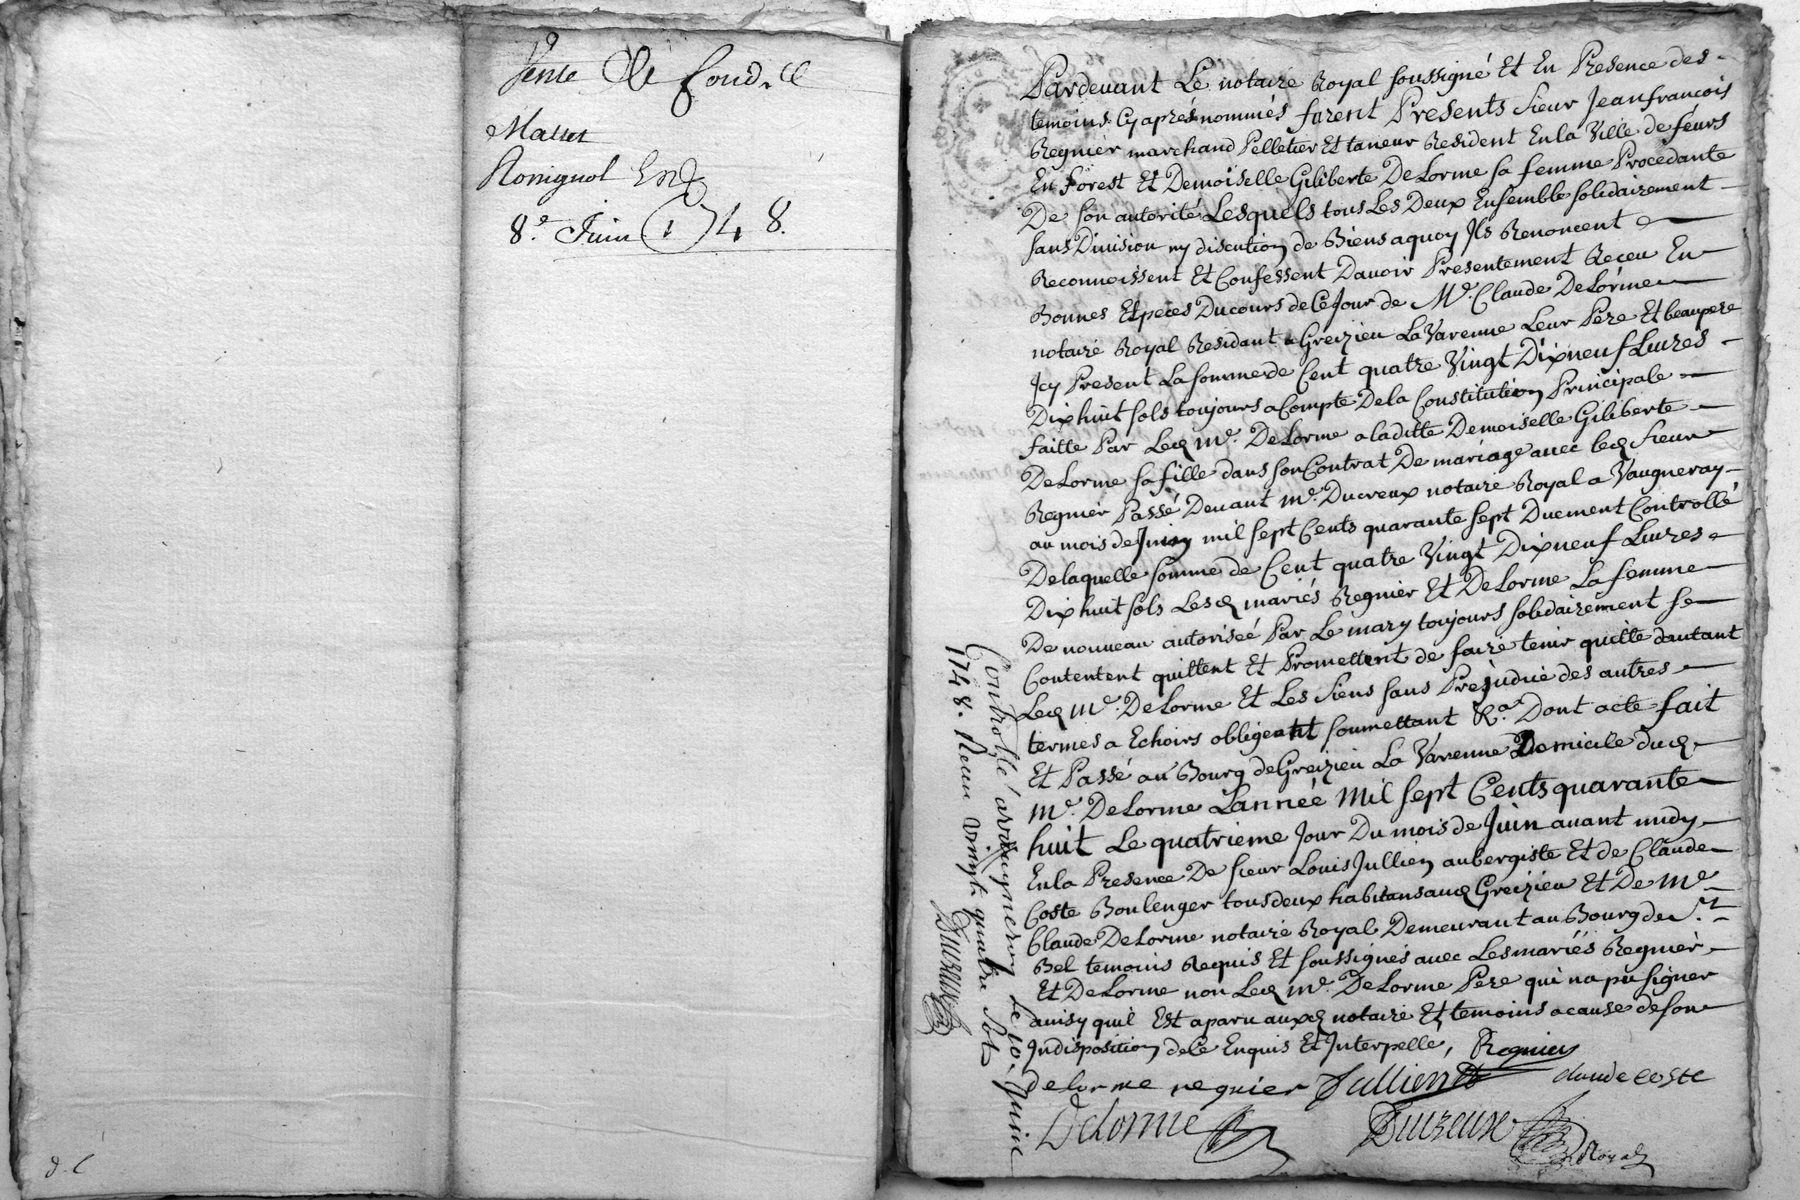 Vente De fond. ce
Mallet
Rossignol End
8.e Juin 1748.
Pardevant Le notaire Royal soussigné Et En Presence des
temoins Cy aprés nommés furent Presents Sieur Jean francois
Regnier marchand Pelletier Et taneur Resident En la Ville de feurs
En Forest Et Demoiselle Giliberte DeLorme sa femme Procedante
De son autorité Lesquels tous Les Deux Ensemble solidairement
sans Division ny discution de Biens a quoy Ils Renoncent
Reconnoissent Et Confessent Davoir Presentement Receu En
Bonnes Especes Du cours de Ce Jour de Me. Claude DeLorme
notaire Royal Residant a Greizieu La Varenne Leur Pere Et beaupere
Icy Present La somme de Cent quatre Vingt Dix neuf Livres
Dix huit sols toujours a Compte De la Constitution Principale
faitte Par Led. Me. DeLorme a laditte Demoiselle Giliberte
DeLorme sa fille dans son Contrat De mariage avec led. Sieur
Regnier Passé Devant Me. Ducreux notaire Royal a Vaugneray
au mois de Juin mil sept Cents quarante sept Duement Controllé
De laquelle somme de Cent quatre Vingt Dix neuf Livres
Dix huit sols Lesd. mariés Regnier Et DeLorme La femme
De nouveau autoriseé Par Le mary toujours solidairement se
Contentent quittent Et Promettent de faire tenir quitte dautant
Led. Me. DeLorme Et Les Siens sans Prejudice des autres
termes a Echoirs obligeant soumettant &a. Dont acte fait
Et Passé au Bourg de Greizieu La Varenne Domicile dud.
Me. DeLorme Lanneé Mil sept Cents quarante
huit Le quatrieme Jour Du mois de Juin avant midy
En la Presence De sieur Louis Jullien aubergiste Et de Claude
Coste Boulenger tous deux habitans aud. Greizieu Et De Me
Claude DeLorme notaire Royal Demeurant au Bourg de St
Bel temoins Requis Et soussignés avec Les mariés Regnier
Et DeLorme non Led. Me. DeLorme Pere qui na pu signer
ainsy quil Est aparu auxd. notaire Et temoins a cause de son
Indisposition de Ce Enquis Et Interpelle, Regnier
delorme regnier Jullien claude coste
Delorme Ducreux
Royal
Controllé a vaugneray Le 10. Juin
1748. Receu vingt quatre sols
Ducreux